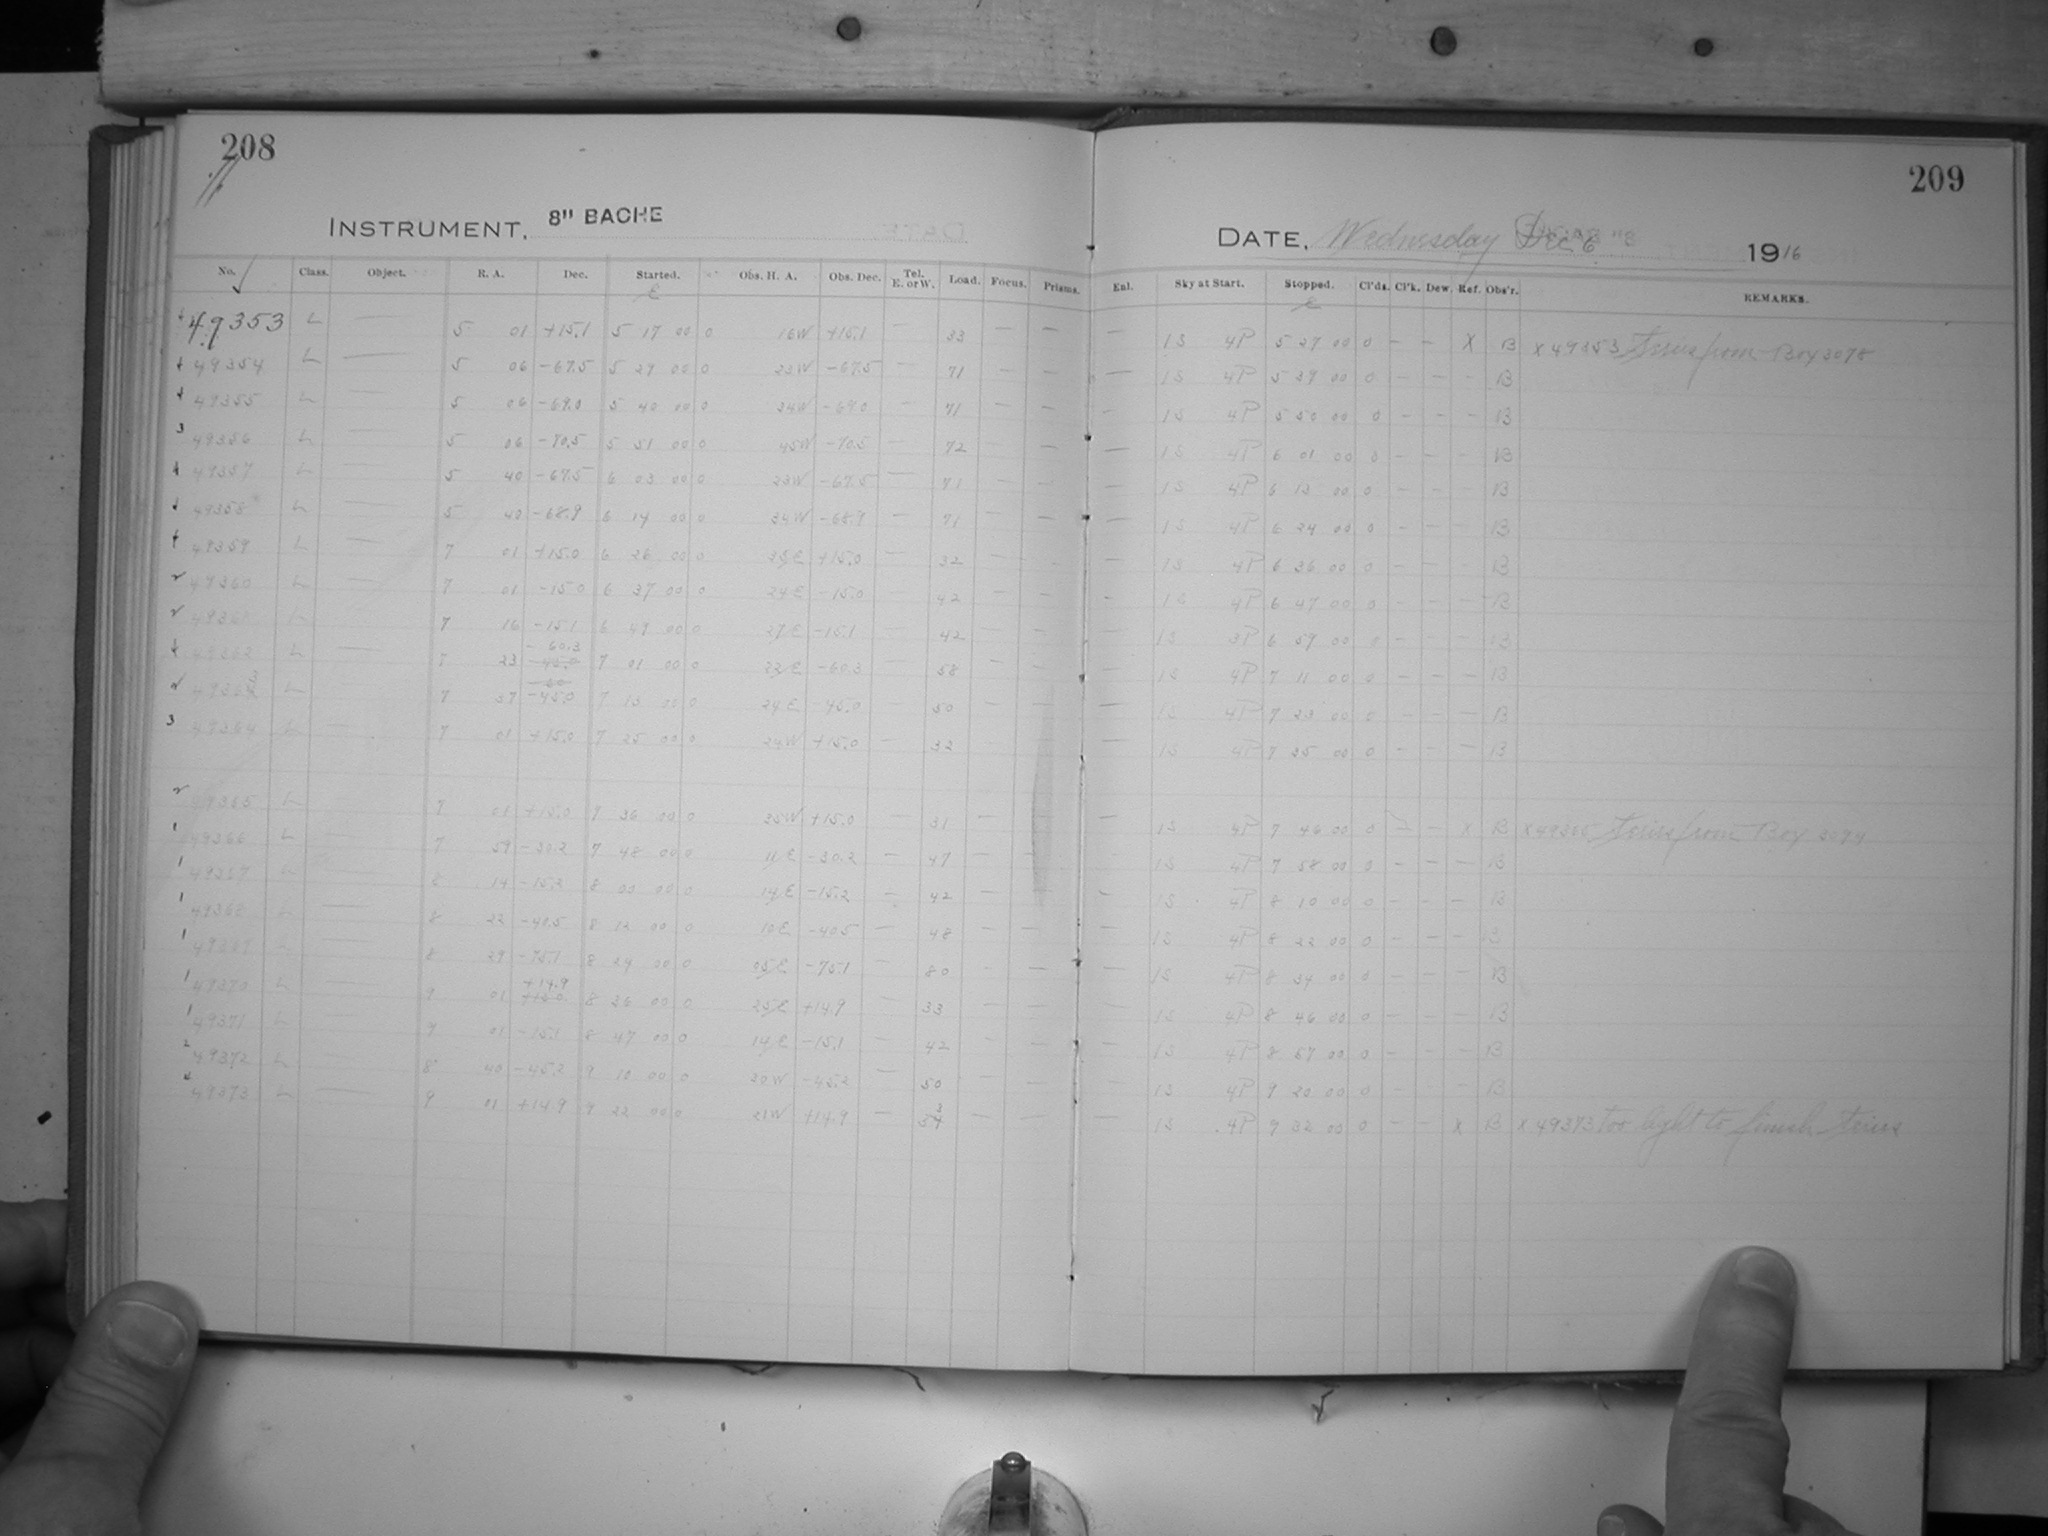 208
INSTRUMENT, 8" BACHE
No. Class. Object. R. A. Dec. Started. Obs. H. A. Obs. Dec. Tel. E. or W. Load. Focus. Prisms.
49353 L — 5 01 +15.1 5 17 00 0 16W +15.1 33 — —
49354 L — 5 06 -67.5 5 29 00 0 23W -67.5 — 71 — —
49355 L — 5 06 -69.0 5 40 00 0 34W -69.0 — 71 — —
49356 L — 5 06 -70.5 5 51 00 0 45W -70.5 — 72 — —
49357 L — 5 40 -67.5 6 03 00 0 23W -67.5 — 71 — —
49358 L — 5 40 -68.9 6 14 00 0 34W -68.9 — 71 — —
49359 L — 7 01 +15.0 6 26 00 0 35E +15.0 — 32 — —
49360 L — 7 01 -15.0 6 37 00 0 24E -15.0 — 42 — —
7 16 -15.1 6 49 00 0 27E -15.1 — 42 — —
49362 L — 23 -60.3 7 01 00 0 22E -60.3 — 58 — —
L — 7 37 -45.0 7 13 00 0 24E -45.0 — 50 — —
49364 L — 7 01 +15.0 7 25 00 0 24W +15.0 — 32 — —
49365 L — 7 01 +15.0 7 36 00 0 35W +15.0 — 31 — —
49366 L — 7 59 -30.2 7 48 00 0 11E -30.2 — 47 — —
49367 L — 8 14 -15.2 8 00 00 0 14E -15.2 — 42 — —
49368 L — 8 22 -40.5 8 12 00 0 10E -40.5 — 48 — —
49369 L — 8 29 -75.1 8 24 00 0 05E -75.1 — 80 — —
49370 L — 9 01 +14.9 8 36 00 0 25E +14.9 — 33 — —
49371 L — 9 01 -15.1 8 47 00 0 14E -15.1 — 42 — —
49372 L — 8 40 -45.2 9 10 00 0 30W -45.2 — 50 — —
49373 L — 9 01 +14.9 9 22 00 0 21W +14.9 — — —
209
DATE, Wednesday Dec 6 1916
Enl. Sky at Start. Stopped. Cl'ds. Cl'k. Dew. Ref. Obs'r. REMARKS.
— 1S 4P 5 27 00 0 — — X B X 49353 Series from Box 3078
— 1S 4P 5 39 00 0 — — — B
— 1S 4P 5 50 00 0 — — — B
— 1S 4P 6 01 00 0 — — — B
— 1S 4P 6 13 00 0 — — — B
— 1S 4P 6 24 00 0 — — — B
— 1S 4P 6 36 00 0 — — — B
— 1S 4P 6 47 00 0 — — — B
— 1S 3P 6 59 00 0 — — — B
— 1S 4P 7 11 00 0 — — — B
— 1S 4P 7 23 00 0 — — — B
— 1S 4P 7 35 00 0 — — — B
1S 4P 7 46 00 0 — — X B X 49365 Series from Box 3074
— 1S 4P 7 58 00 0 — — — B
— 1S 4P 8 10 00 0 — — — B
— 1S 4P 8 22 00 0 — — — B
— 1S 4P 8 34 00 0 — — — B
— 1S 4P 8 46 00 0 — — — B
— 1S 4P 8 57 00 0 — — — B
— 1S 4P 9 20 00 0 — — — B
— 1S 4P 9 32 00 0 — — X B X 49373 too light to finish series